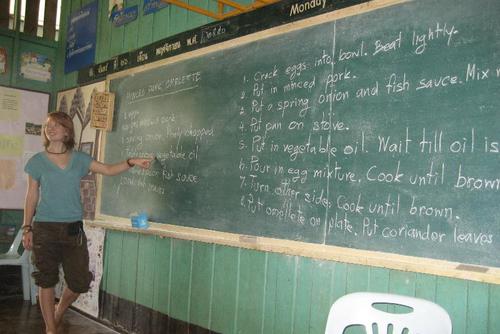 Monday
พฤศจิกายน พ.ศ.
MINCED PORK OMELETTE
eggs
minced pork
1 spring onion, finely chopped
vegetable oil
fish sauce
1. Crack eggs into bowl. Beat lightly.
2. Put in minced pork.
3. Put a spring onion and fish sauce. Mix
4. Put pan on stove.
5. Put in vegetable oil. Wait till oil is
6. Pour in egg mixture. Cook until brown
7. Turn other side. Cook until brown.
8. Put omelette on plate. Put coriander leaves